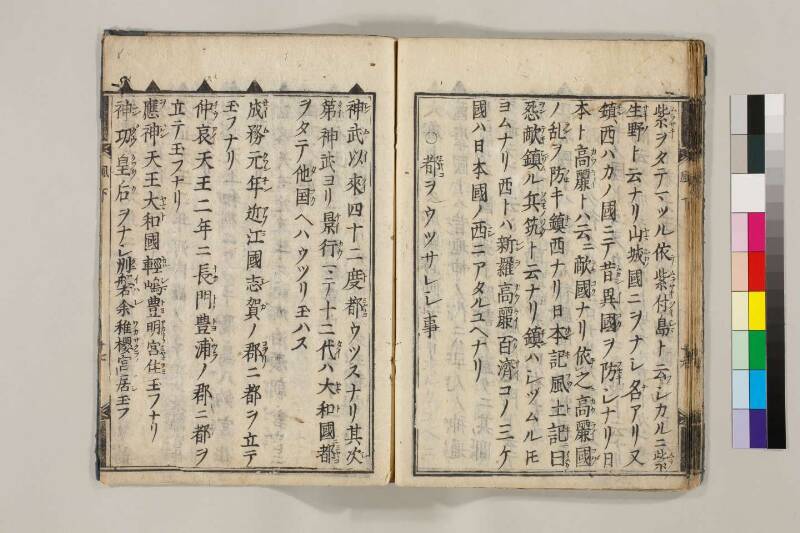 紫ヲタテマツル依紫付島ト云シカルニ紫
生野ト云ナリ山城國ニヲナシ名アリ又
鎮西ハカノ國ニテ昔異國ヲ防シナリ日
本ト高麗トハ云ニ敵國ナリ依之高麗國
ノ乱ヲ防キ鎮西ナリ日本記風土記曰
悉敵鎮ル兵筑ト云ナリ鎮ハシツムルモ
ヨムナリ西トハ新羅高麗百濟コノ三ケ
國ハ日本國ノ西ニアタルユヘナリ
都ヲウツサレシ事
神武以來四十二度都ウツスナリ其次
第神武ヨリ景行マテ十二代ハ大和國都
ヲタテ他国ヘハウツリ玉ハス
成務元年近江國志賀ノ郡ニ都ヲ立テ
玉フナリ
仲哀天王二年ニ長門豊浦ノ郡ニ都ヲ
立テ玉フナリ
應神天王大和國輕嶋豊明宮住玉フナリ
神功皇后ヲナシ余稚櫻宮居玉フ
風下